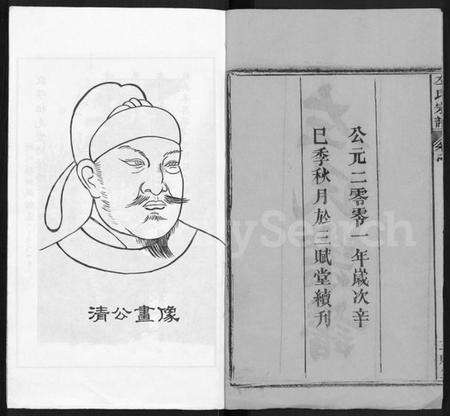 公元二零零一年歲次辛
巳季秋月於三賦堂續刊
清公畫像